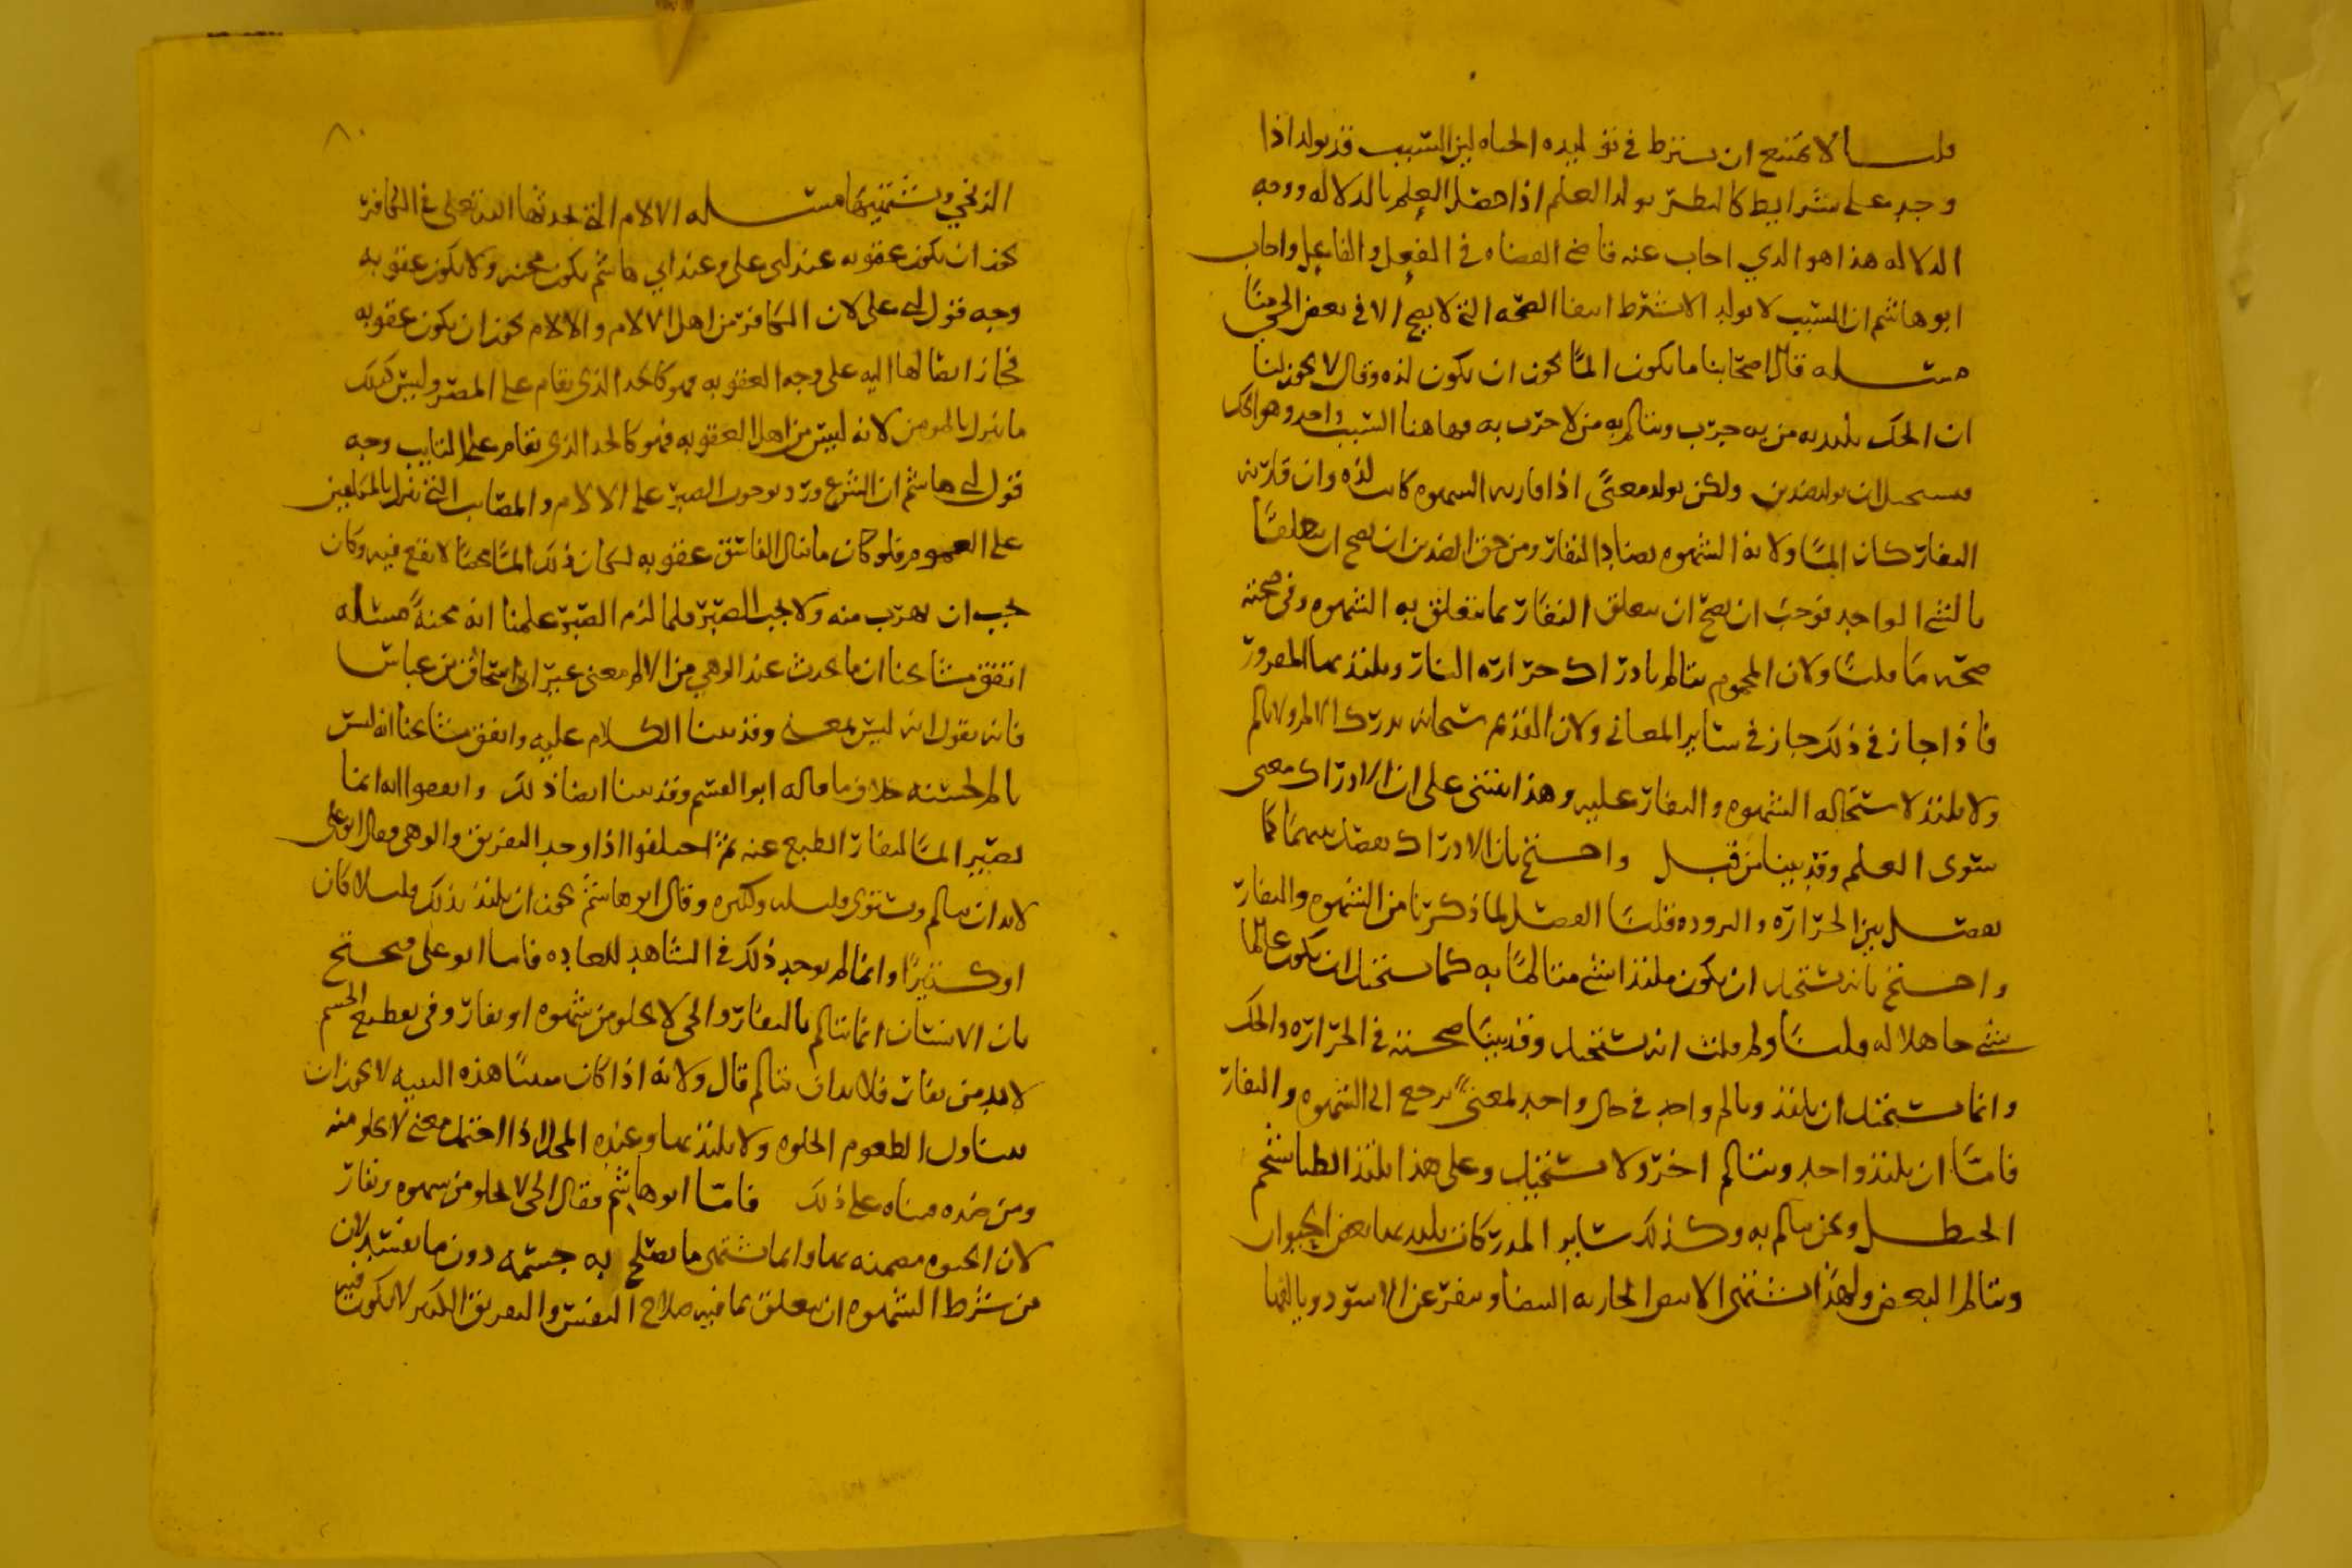 قلنا لا يمتنع ان يشترط في توليده الحياه لان السبب قد يولد اذا
وجد على شرايط كالنظر يولد العلم اذا حصل العلم بالدلاله ووجه
الدلاله هذا هو الذي اجاب عنه قاضي القضاه في الفعل والفاعل واجاب
ابو هاشم ان السبب لا يولد الا بشرط انتفا الصحه التي لا يصح الا في بعض الحي منا
مسله قال اصحابنا ما يكون المًا يجوز ان يكون لذه وقال لا يجوز لنا
ان الحك يلتذ به من به جرب ويتالم به من لا جرب به فهاهنا السبب واحد وهو الحك
فيستحيل ان يولد ضدين ولكن يولد معنًى اذا قارنه الشهوه كانت لذه وان قارنه
النفار كان المًا ولانه الشهوه يضاد النفار ومن حق الضدين ان يصح ان يتعلقا
بالشي الواحد فوجب ان يصح ان يتعلق النفار بما يتعلق به الشهوه وفي صحته
صحه ما قلنا ولان المحموم يتالم بادراك حراره النار ويلتذ بها المقرور
فاذا جاز في ذلك جاز في ساير المعاني ولان القديم سبحانه يدرك الالم ولا يالم
ولا يلتذ لاستحاله الشهوه والنفار عليه وهذا ينبني على ان الادراك معنى
سوى العلم وقد بينا من قبل واحتج بان الادراك يفصل بينهما كما
يفصل بين الحراره والبروده قلنا الفصل لما ذكرنا من الشهوه والنفار
واحتج بانه يستحيل ان يكون ملتذا بشي متالمًا به كما يستحيل ان يكون عالما
بشي جاهلا له قلنا ولم قلت انه يستحيل وقد بينا صحته في الحراره والحك
وانما يستحيل ان يلتذ ويالم واحد في حال واحد لمعنًى يرجع الى الشهوه والنفار
فامّا ان يلتذ واحد ويتالم اخر ولا يستحيل وعلى هذا يلتذ الظبا شحم
الحنظل ونحن نتالم به وكذلك ساير المدركات يلتذ بها بعض الحيوان
ويتالم البعض ولهذا يشتهي الابيض الجاريه البيضا وينفر عن الاسود وبالضد
٨٠
الزنجي ويشتهيها مسله الالام التي يحدثها الله تعلى في الكافر
يجوز ان يكون عقوبه عند ابي على وعند ابي هاشم يكون محنه ولا يكون عقوبه
وجه قول ابي على لان الكافر من اهل الالام والالام يجوز ان يكون عقوبه
فجاز ايصالها اليه على وجه العقوبه فهو كالحد الذي يقام على المصر وليس كذلك
ما ينزل بالمومن لانه ليس من اهل العقوبه فهو كالحد الذي يقام على التايب وجه
قول ابي هاشم ان الشرع ورد بوجوب الصبر على الالام والمصايب التي تنزل بالمكلفين
على العموم فلو كان ما ينال الفاسق عقوبه لكان ذلك المًا محضًا لا نفع فيه وكان
يجب ان يهرب منه ولا يجب الصبر فلما لزم الصبر علمنا انه محنةً مسله
اتفق مشايخنا ان ما يحدث عند الوهي من الالم معنى غير ابي اسحاق بن عياش
فانه يقول انه ليس بمعنى وقد بينا الكلام عليه واتفق مشايخنا انه ليس
بالم لجنسه خلاف ما قاله ابو القسم وقد بينا ايضا ذلك واتفقوا انه انما
يصير المًا لنفار الطبع عنه ثم اختلفوا اذا وجد التفريق والوهي فقال ابو علي
لابد ان يتالم ويستوي قليله وكثيره وقال ابو هاشم يجوز ان يلتذ بذلك قليلا كان
او كثيرًا وانما لم يوجد ذلك في الشاهد للعاده فاما ابو على فيحتج
بان الانسان انما يتالم بالنفار والحي لا يخلو من شهوه او نفار وفي تقطيع الجسم
لابد من نفار فلابد ان يتالم قال ولانه اذا كان مبنيا هذه البنيه لا يجوز ان
يتناول الطعوم الحلوه ولا يلتذ بها وعنده المحل اذا احتمل معنى لا يخلو منه
ومن ضده فبناه على ذلك فامّا ابو هاشم فقال الحي لا يخلو من شهوه ونفار
لان الحيوه مضمنه بها وانما يشتهى ما يصلح به جسمه دون ما يفسد لان
من شرط الشهوه ان يتعلق بما فيه صلاح النفس والتفريق الكثير لا يكون فيه